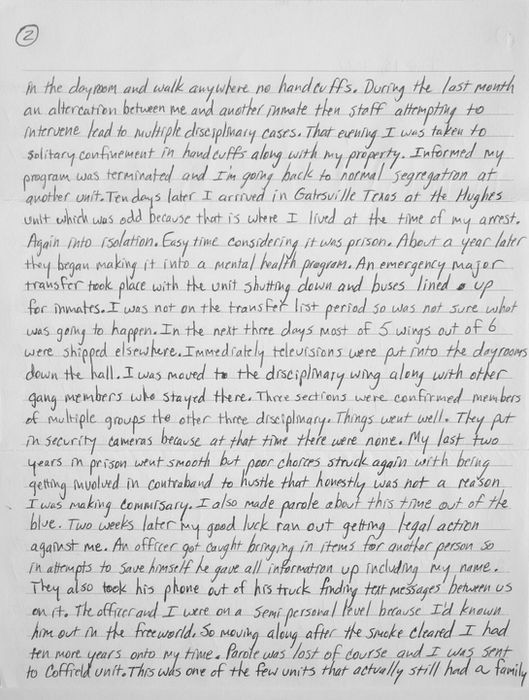 2
in the dayroom and walk anywhere no handcuffs. During the last month
an altercation between me and another inmate then staff attempting to
intervene lead to multiple disciplinary cases. That evening I was taken to
solitary confinement in handcuffs along with my property. Informed my
program was terminated and I'm going back to normal segregation at
another unit. Ten days later I arrived in Gatesville Texas at the Hughes
unit which was odd because that is where I lived at the time of my arrest.
Again into isolation. Easy time considering it was prison. About a year later
they began making it into a mental health program. An emergency major
transfer took place with the unit shutting down and buses lined up
for inmates. I was not on the transfer list period so was not sure what
was going to happen. In the next three days most of 5 wings out of 6
were shipped elsewhere. Immediately televisions were put into the dayrooms
down the hall. I was moved to the disciplinary wing along with other
gang members who stayed there. Three sections were confirmed members
of multiple groups the other three disciplinary. Things went well. They put
in security cameras because at that time there were none. My last two
years in prison went smooth but poor choices struck again with being
getting involved in contraband to hustle that honestly was not a reason
I was making commisary. I also made parole about this time out of the
blue. Two weeks later my good luck ran out getting legal action
against me. An officer got caught bringing in items for another person so
in attempts to save himself he gave all information up including my name.
They also took his phone out of his truck finding text messages between us
on it. The officer and I were on a semi personal level because I'd known
him out in the freeworld. So moving along after the smoke cleared I had
ten more years onto my time. Parole was lost of course and I was sent
to Coffield unit. This was one of the few units that actually still had a family